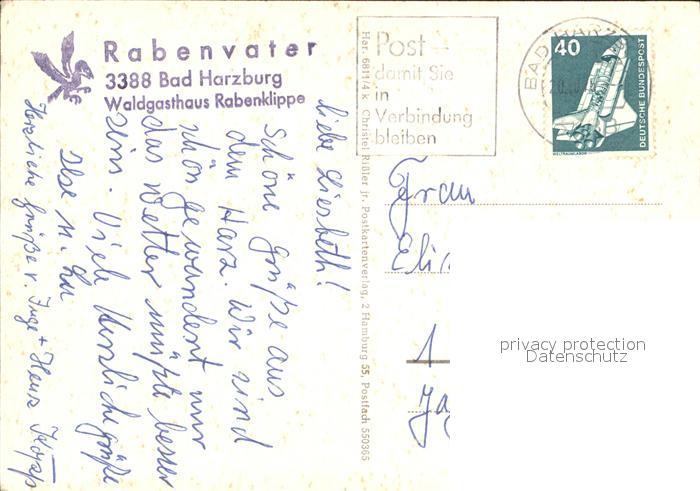 Rabenvater
3388 Bad Harzburg
Waldgasthaus Rabenklippe
liebe Liesbeth!
Schöne Grüße aus
dem Harz. Wir sind
schön gewandert nur
das Wetter müßte besser
sein. Viele Herzliche Grüße
Ilse u.
Herzliche Grüße v. Inge + Heinz
Har. 6811/4 k Christel Rißler jr. Postkartenverlag, 2 Hamburg 55, Postfach 550365
Post –
damit Sie
in
Verbindung
bleiben
BAD HARZ
40
DEUTSCHE BUNDESPOST
WELTRAUMLABOR
Frau
Eli
1
privacy protection
Datenschutz